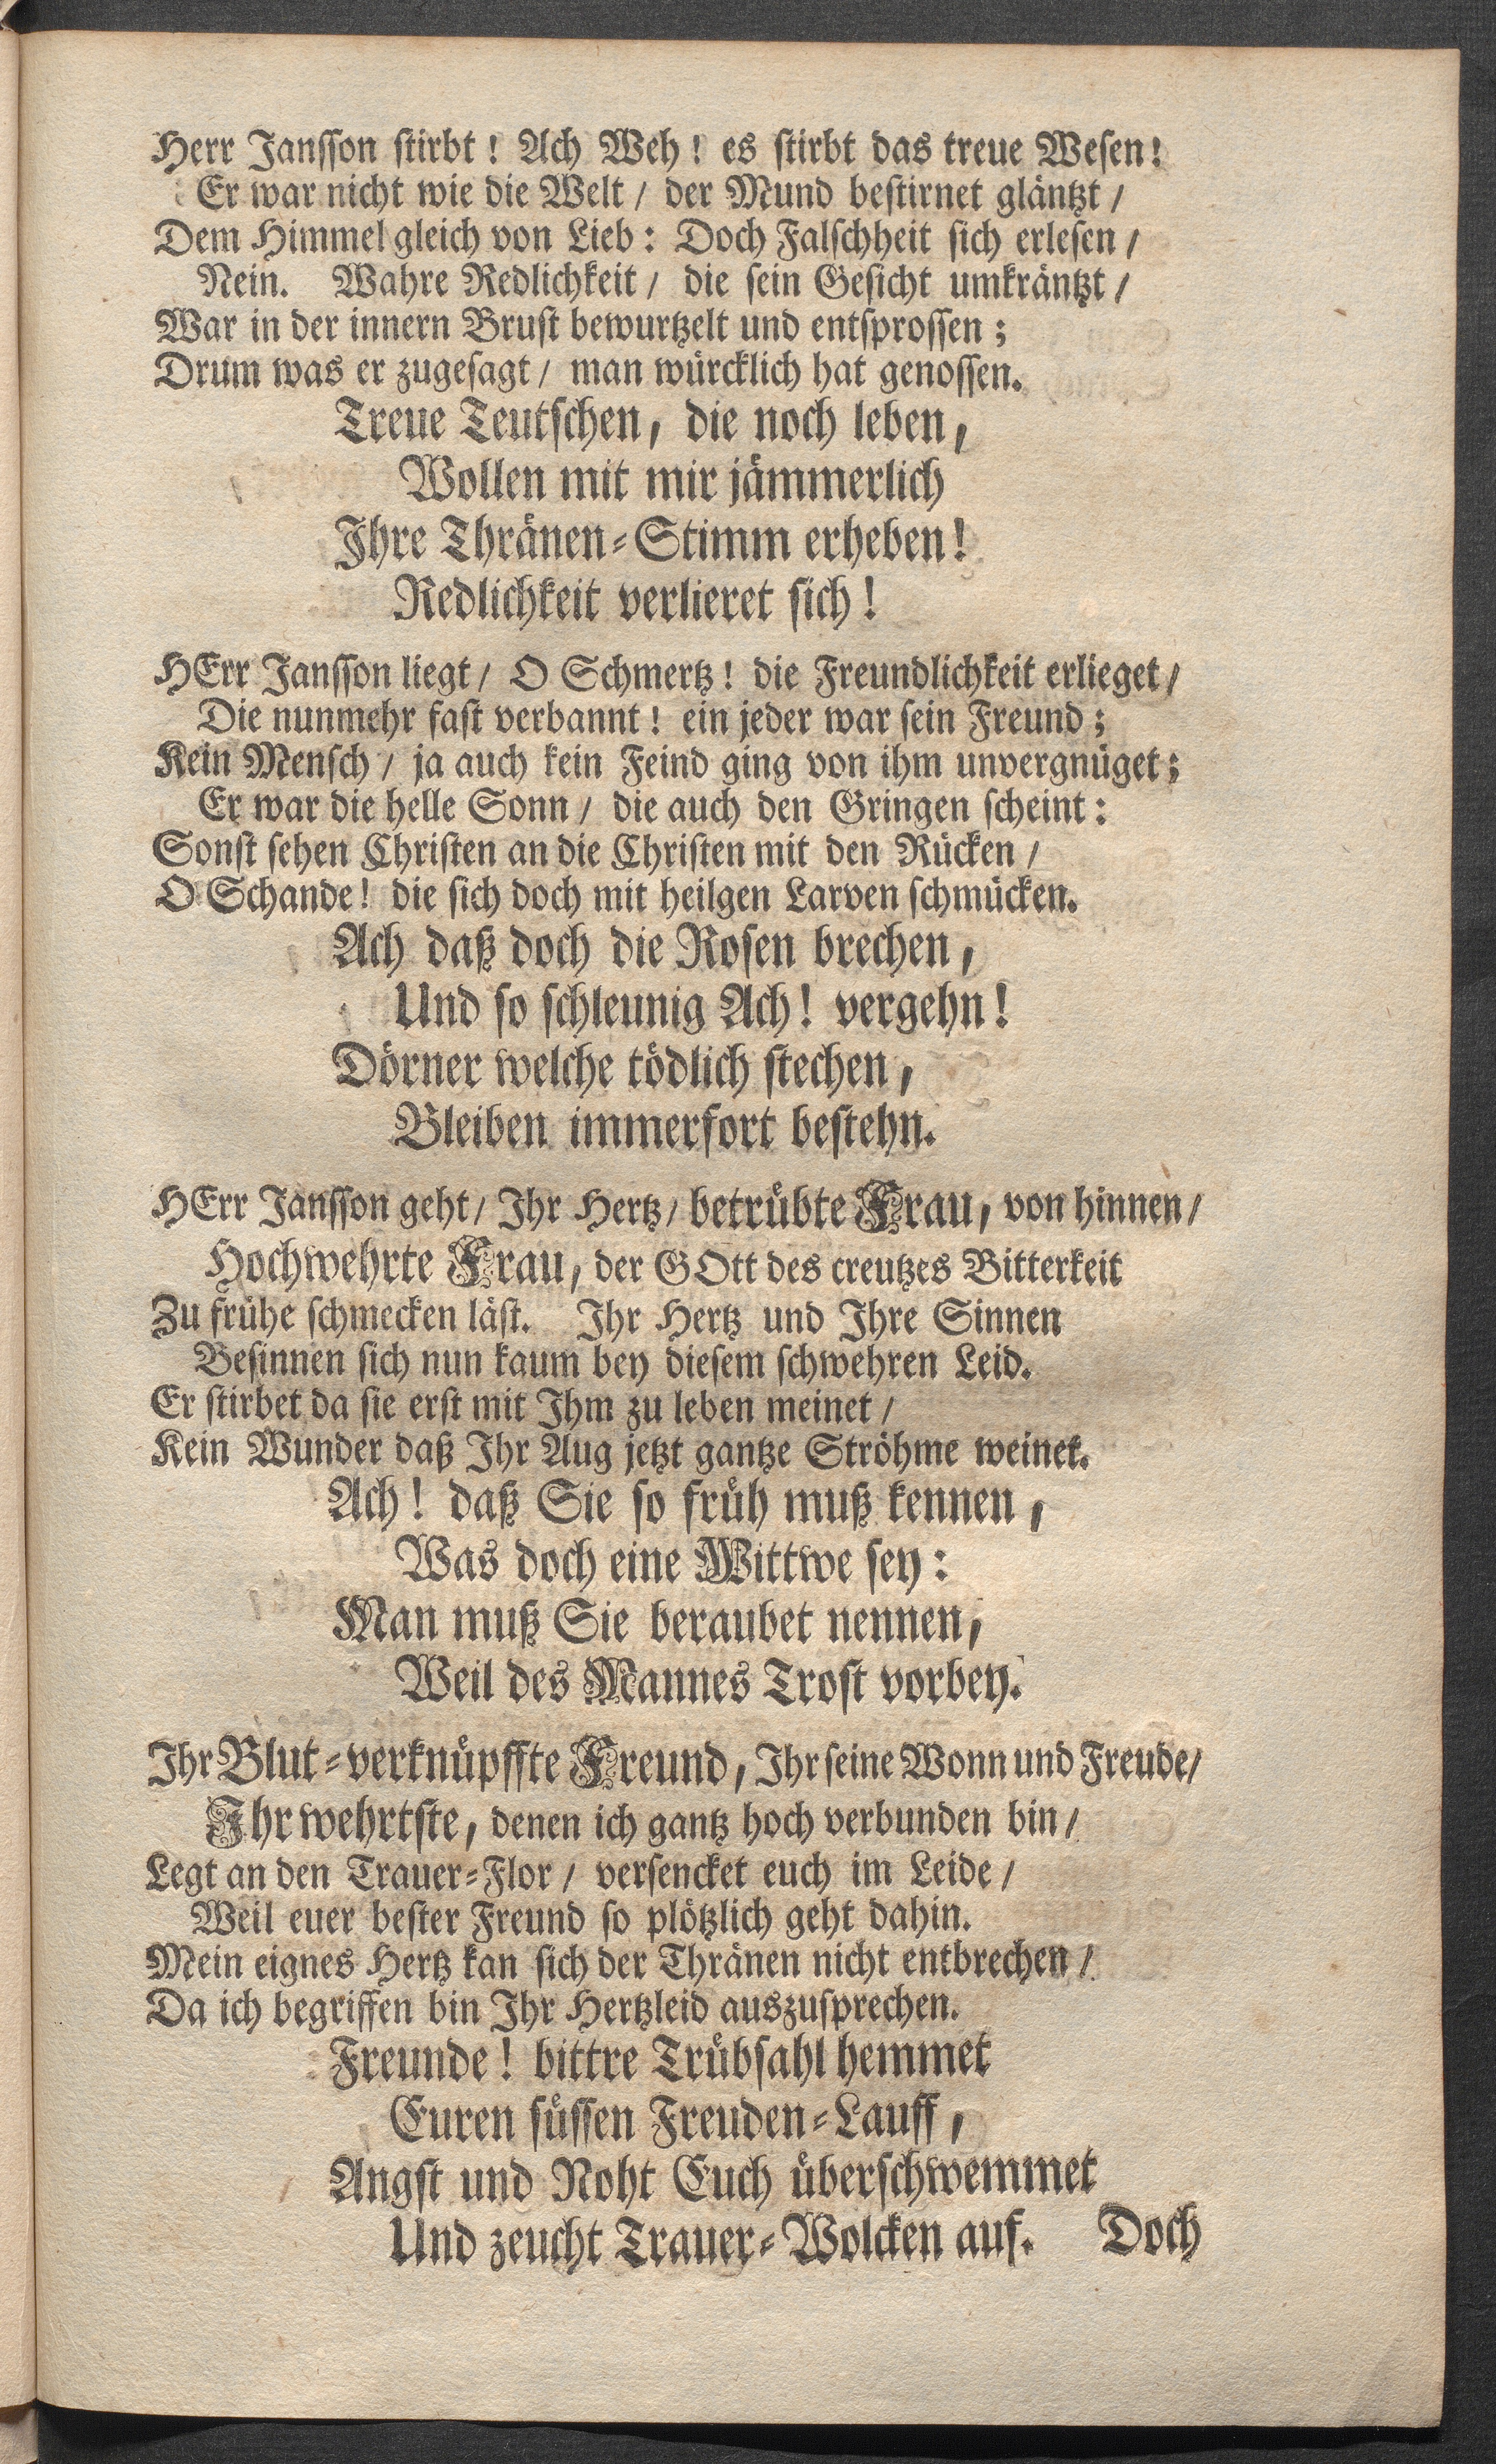 Herr Jansson stirbt! Ach Weh! es stirbt das treue Wesen!
Er war nicht wie die Welt / der Mund bestirnet gläntzt /
Dem Himmel gleich von Lieb: Doch Falschheit sich erlesen /
Nein. Wahre Redlichkeit / die sein Gesicht umkräntzt /
War in der innern Brust bewurtzelt und entsprossen;
Drum was er zugesagt / man würcklich hat genossen.
Treue Teutschen, die noch leben,
Wollen mit mir jämmerlich
Ihre Thränen-Stimm erheben!
Redlichkeit verlieret sich!
HErr Jansson liegt / O Schmertz! die Freundlichkeit erlieget /
Die nunmehr fast verbannt! ein jeder war sein Freund;
Kein Mensch / ja auch kein Feind ging von ihm unvergnüget;
Er war die helle Sonn / die auch den Gringen scheint:
Sonst sehen Christen an die Christen mit den Rücken /
O Schande! die sich doch mit heilgen Larven schmücken.
Ach daß doch die Rosen brechen,
Und so schleunig Ach! vergehn!
Dörner welche tödlich stechen,
Bleiben immerfort bestehn.
HErr Jansson geht / Ihr Hertz / betrübte Frau, von hinnen /
Hochwehrte Frau, der GOtt des creutzes Bitterkeit
Zu frühe schmecken läst. Ihr Hertz und Ihre Sinnen
Besinnen sich nun kaum bey diesem schwehren Leid.
Er stirbet da sie erst mit Ihm zu leben meinet /
Kein Wunder daß Ihr Aug jetzt gantze Ströhme weinet.
Ach! daß Sie so früh muß kennen,
Was doch eine Wittwe sey:
Man muß Sie beraubet nennen,
Weil des Mannes Trost vorbey.
Ihr Blut-verknüpffte Freund, Ihr seine Wonn und Freude /
Ihr wehrtste, denen ich gantz hoch verbunden bin /
Legt an den Trauer-Flor / versencket euch im Leide /
Weil euer bester Freund so plötzlich geht dahin.
Mein eignes Hertz kan sich der Thränen nicht entbrechen /
Da ich begriffen bin Ihr Hertzleid auszusprechen.
Freunde! bittre Trübsahl hemmet
Euren süssen Freuden-Lauff,
Angst und Noht Euch überschwemmet
Und zeucht Trauer-Wolcken auf. Doch